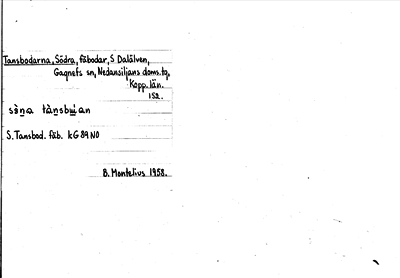 Tansbodarna, Södra, fäbodar, S Dalälven,
Gagnefs sn, Nedansiljans doms.tg,
Kopp. län.
152.
sö̀na tànsbu̇̀an
S. Tansbod. fäb. kG 89 NO
B. Montelius 1958.